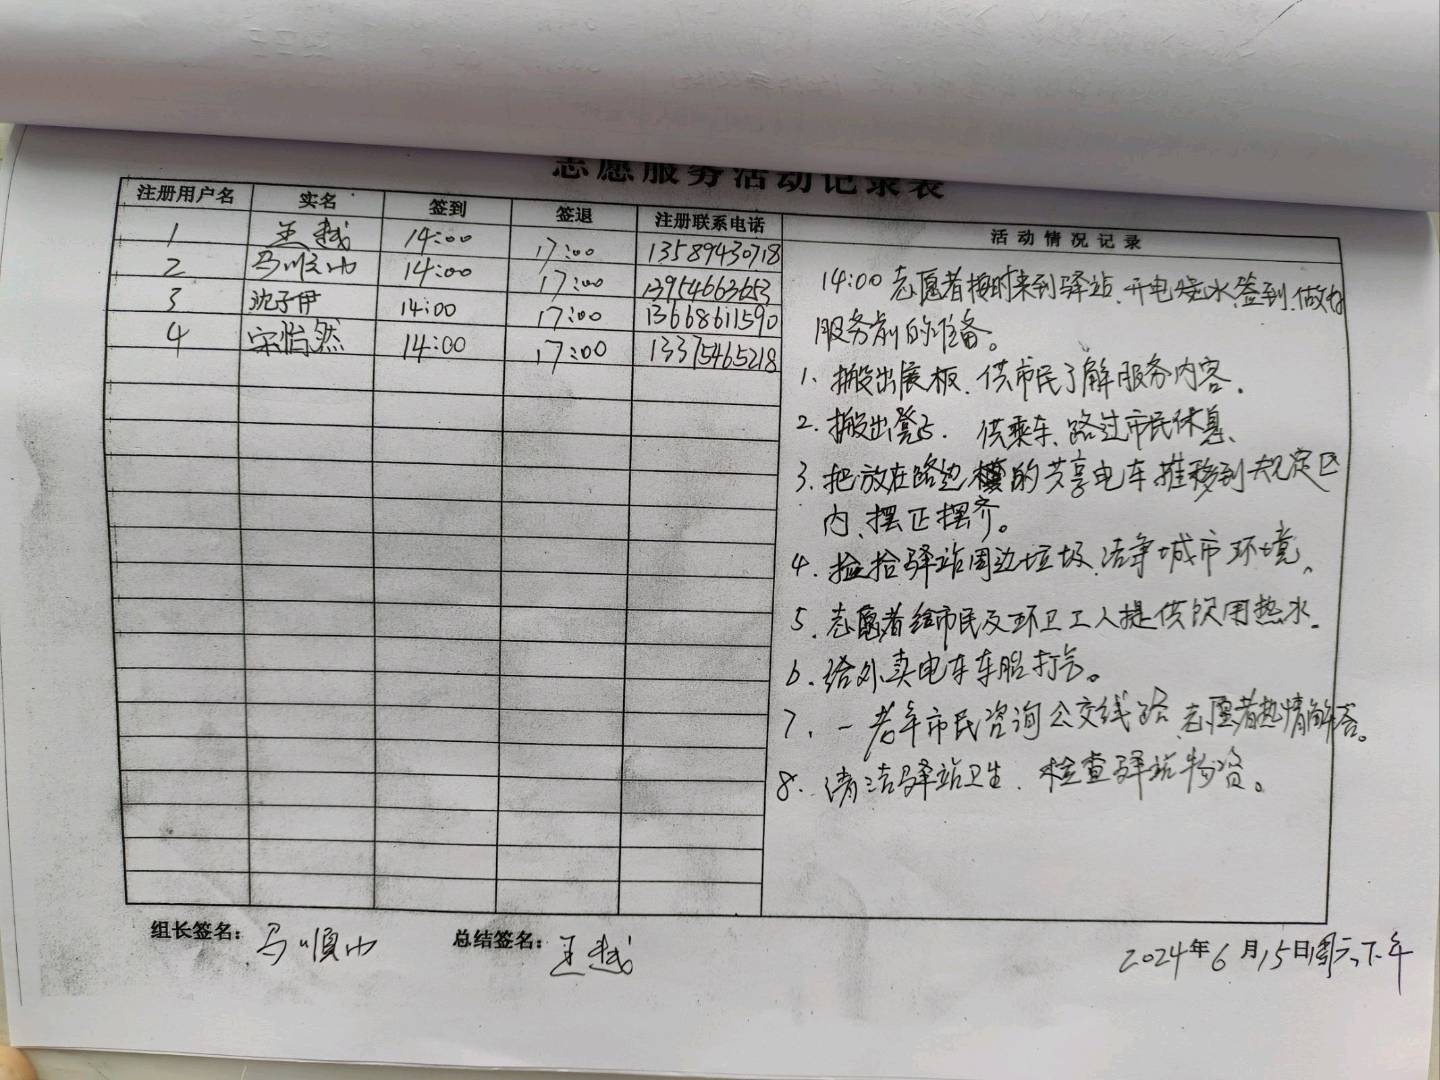 志愿服务活动记录表
注册用户名 实名 签到 签退 注册联系电话 活动情况记录
1 王越 14:00 17:00 13589430718
2 马顺山 14:00 17:00 13954663653
3 沈子伊 14:00 17:00 13668611590
4 宋怡然 14:00 17:00 13375465218
14:00志愿者按时来到驿站、开电烧水、签到、做好
服务前的准备。
1、搬出展板、供市民了解服务内容。
2、搬出凳子、供乘车、路过市民休息、
3、把放在路边的共享电车推移到规定区
内、摆正摆齐。
4、捡拾驿站周边垃圾、洁净城市环境、
5、志愿者给市民及环卫工人提供饮用热水。
6、给外卖电车车胎打气。
7、一老年市民咨询公交线路、志愿者热情解答。
8、清洁驿站卫生、检查驿站物资。
组长签名：马顺山 总结签名：王越 2024年6月15日周六下午